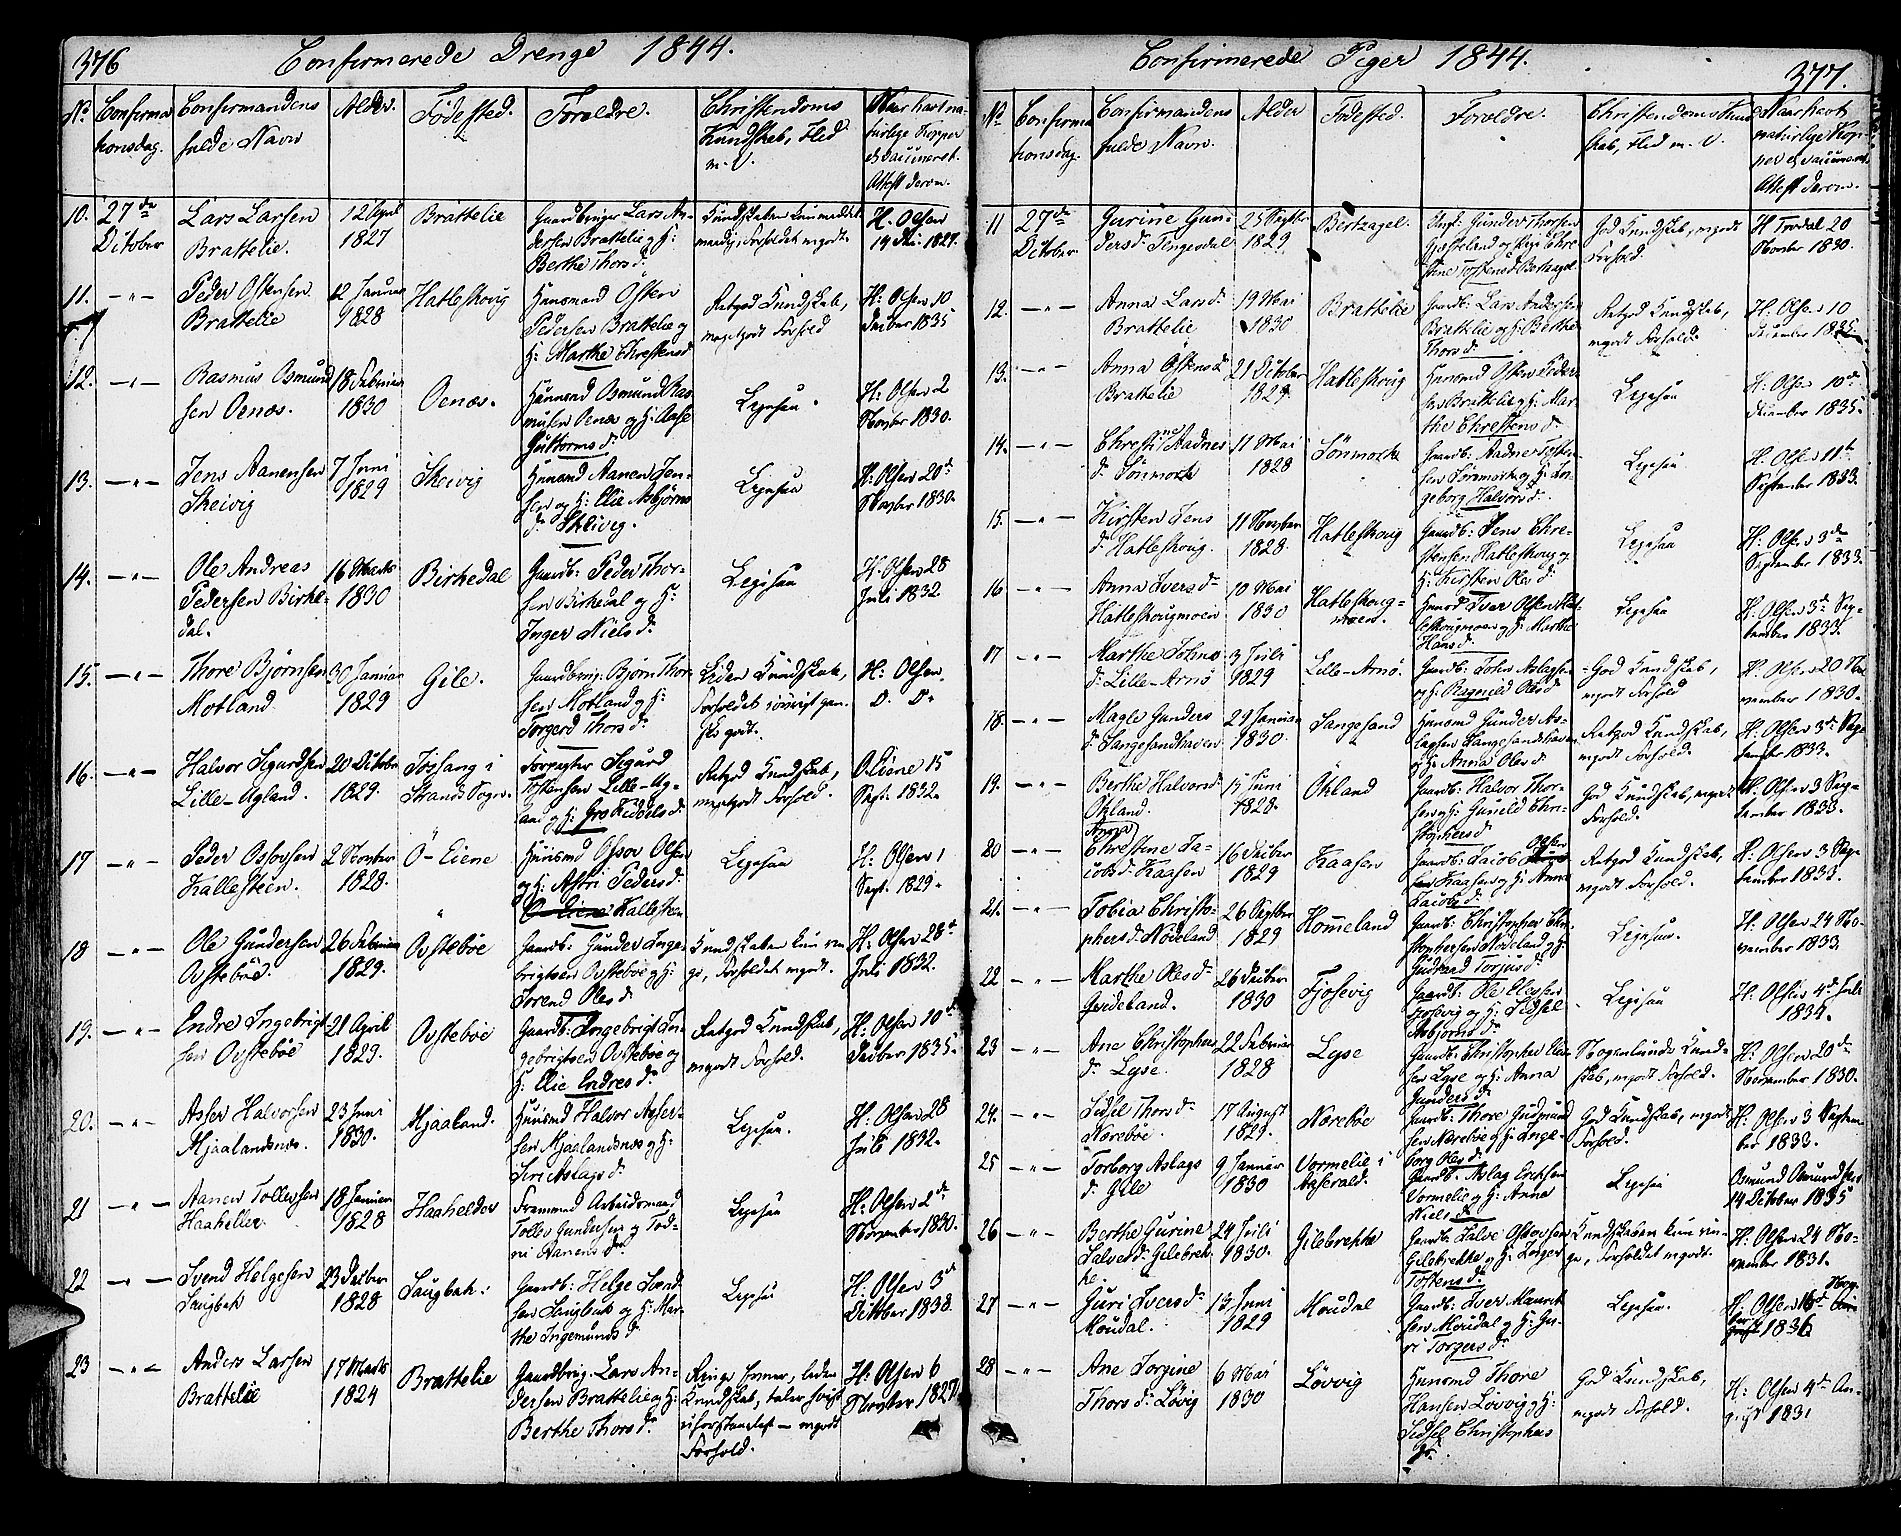 376
Confirmerede Drenge 1844.
No
Confirma
tionsdag.
Confirmandens
fulde Navn
Alder.
Födested.
Forældre.
Christendoms
Kundskab, Flid
m. v.
Naar havt na-
turlige Kopper
el. vaccineret.
Attest derom.
10.
27de
October
Lars Larsen
Brattelie.
12 April
1827
Brattelie
Gaardbruger Lars An-
dersen Brattelie og H:
Berthe Thorsd.
H. Olsen
11.
Peder Ostensen
Brattelie
12 Januar
1828
Hatleskovig
Huusmand Osten
Pedersen Brattelie og
H: Marthe Christensd
Retgod Kundskab,
meget godt Forhold
H: Olsen 10
Decbr 1835
12.
Rasmus Osmund
sen Oenæs.
18 Februar
1830
Oenæs.
Huusmand Osmund Ras-
musen Oenæs og H: Aase
Guttormsd.
Ligesaa.
H: Olsen 2
Novbr 1830.
13.
Jens Aanensen
Skeivig
7 Juni
1829
Skeivig
Huusmd Aanen Jen-
sen og H: Elie Asbjörns
d. Skeivig.
Ligesaa
H: Olsen 20de
Novbr 1830.
14.
Ole Andreas
Pedersen Birke-
dal.
16 Marts
1830
Birkedal
Gaardb: Peder Thor-
sen Birkedal og H:
Inger Nielsd.
Ligesaa
H: Olsen 28
Juli 1832
15.
Thore Björnsen
Motland
30 Januar
1829
Gile.
Gaardbrug: Björn Thor-
sen Motland og H:
Torgerd Thorsd.
Liden Kundskab,
Forholdet iövrigt gan-
ske godt.
H: Olsen
D. D.
16.
Halvor Sigurdsen
Lille-Ugland.
20 Octobr
1829.
Tössang i
Strands Sogn.
Forpagter Sigurd
Tostensen Lille-Ug-
land og H: Gro Kiddelsd.
Retgod Kundskab,
megetgodt Forhold.
O. Eiene 15
Sept: 1832.
17
Peder Ossovsen
Kallesteen.
2 Novbr
1828.
Ö-Eiene
Huusmd Ossov Olsen
og H: Astri Pedersd.
Ö-Eiene Kallesteen
Ligesaa
H: Olsen 1
Sept. 1829.
18
Ole Gundersen
Ovstebøe.
26 Februar
1829.
Ovstebøe
Gaardb: Gunder Inge-
brigtsen Ovstebøe og H:
Torend Olesd.
Kundskaben kun rin-
ge, Forholdet mgodt.
H: Olsen 28de
Juli 1832.
19.
Endre Ingebrigt
sen Ovstebøe
21 April
1829.
Ovstebøe
Gaardb: Ingebrigt In-
gebrigtsen Ovstebøe og
H: Elie Endresd.
Retgod Kundskab,
mgodt Forhold.
H: Olsen 10de
Decbr 1835.
20.
Asser Halvorsen
Mjaalandsnæs.
23 Juni
1830.
Mjaaland.
Huusmd Halvor Asser-
sen Mjaalandsnæs og H:
Siri Aslagsd.
Ligesaa.
H: Olsen 28
Juli 1832.
21
Aanen Tollevsen
Haaheller.
18 Januar
1828
Haahelder
Fremmed Arbeidsmand
Tollev Gundersen og Tod-
ni Aanensd.
Ligesaa
H: Olsen 2de
Novbr 1830.
22
Svend Helgesen
Laugbak
23 Decbr
1828
Laugbak.
Gaardb: Helge Svend-
sen Laugbak og H: Mar-
the Ingemundsd.
Ligesaa
H: Olsen 3de
October 1838.
23
Anders Larsen
Brattelie
17 Marts
1824
Brattelie
Gaardbrug. Lars An-
dersen Brattelie og H:
Berthe Thorsd.
Ringe Evner, liden
Kundskab, taler høist
uforstaaeligt – mgodt
Forhold.
H: Olsen 6
Novbr 1827.
377.
Confirmerede Piger 1844.
No
Confirma
tionsdag.
Confirmandens
fulde Navn.
Alder
Födested.
Forældre.
Christendoms Kund
skab, Flid m. v.
Naar havt
naturlige Kop-
per el vaccineret.
Attest derom.
11
27de
October.
Gurine Gun-
dersd. Tengesdal
25 Septbr
1829.
Bertzagel.
Unk: Gunder Thorsen
God Kundskab, mgodt
Forhold.
H Trodal 20
Novbr 1830.
12.
Anna Larsd.
Brattelie
19 Mai
1830
Brattelie
Gaardb: Lars Andersen
Brattelie og H: Berthe
Thorsd.
Retgod Kundskab,
mgodt Forhold.
H: Olsen 10
December 1835.
13.
Anna Ostensd.
Brattelie
21 October
1829.
Hatleskovig
Huusmd Osten Peder-
sen Brattelie og H: Mar-
the Christensd.
Ligesaa
H: Olsen 10de
December 1835.
14.
Christine Aadnes
d. Sönmork
11 Mai
1828
Sönmork
Gaardb: Aadne Tosten-
sen Sönmork og H: In-
geborg Halvorsd.
Ligesaa.
H: Olsen 11te
September 1833.
15.
Kirsten Jens
d. Hatleskovig.
11 Novbr
1828.
Hatleskovig
Gaardb: Jens Chri-
stensen Hatleskovig og
H: Kirsten Olesd.
Ligesaa
H: Olsen 3de
September 1833.
16
Anna Iversd.
Hatleskougmoen
10 Mai
1830
Hatleskoug-
moen.
Huusmd Iver Olsen Hat-
leskougmoen og H: Marthe
Hansd.
Ligesaa
H: Olsen 3de Sep-
tember 1833.
17
Marthe Johns
d. Lille-Arnö
3 Juli
1829
Lille-Arnö.
Gaardb: John Aslagsen
og H: Ragnild Olesd.
God Kundskab,
mgodt Forhold
H: Olsen 20 No-
vember 1830.
18.
Magle Gunders
d. Langesandhaven
29 Januar
1830.
Langesand
Huusmd Gunder As-
lagsen Langesandshaven
og H: Anna Olesd.
Retgod Kundskab,
mgodt Forhold.
H: Olsen 3de Sep-
tember 1833.
19.
Berthe Halvorsd.
Okland
15 Juni
1828.
Okland
Gaardb: Halvor Thor-
sen og H: Gunild Chri-
stophersd.
God Kundskab, mgodt
Forhold.
H: Olsen 3 Sep-
tember 1833.
20
Anna
Christine Ja-
cobsd. Kaasen
16 Decbr
1829
Kaasen
Gaardb: Jacob Olsen
Kaasen og H: Anna
Jacobsd.
Retgod Kundskab,
mgodt Forhold.
H: Olsen 3 Sep-
tember 1833.
21.
Tobia Christo-
phersd. Nödeland
26 Septbr
1829
Homeland
Gaardb: Christopher Chri-
stophersen Nödeland og H:
Gudrand Torjusd.
Ligesaa.
H: Olsen 24 No-
vember 1833
22
Marthe Olesd.
Geideland.
26 Decbr
1830
Fjosevig
Gaardb: Ole Olessen
Fjosevig og H: Sidsel
Asbjornsd.
Ligesaa
H: Olsen 4de Juli
1834.
23
Ane Christophers
d. Lyse.
22 Februar
1828
Lyse
Gaardb: Christopher
sen Lyse og H: Anna
Gundersd.
Nogenlunde Kund-
skab, mgodt Forhold.
H: Olsen 20de
November 1830.
24.
Sidsel Thorsd.
Norebøe.
17 August
1829.
Norebøe
Gaardb: Thore Gudmund
sen Norebøe og H: Inge-
borg Olesd.
God Kundskab, mgodt
Forhold.
H: Olsen 3 Septem-
ber 1833.
25
Torborg Aslags
d. Gile
9 Januar
1830
Vormelie i
Aaserald.
Gaardb. Aslag Erichsen
Vormelie og H: Anna
Nielsd.
Ligesaa
Osmund Osmundsen
14 October 1835
26
Berthe Gurine
Salvesd. Gilebrek-
ke.
24 Juli
1830.
Gilebrekke
Gaardb: Salve Ossovsen
Gilebrekke og H: Inger
Tostensd.
Kundskaben kun rin-
ge, Forholdet mgodt.
H: Olsen 24 No-
vember 1831.
27
Guri Iversd.
Moudal.
13 Juni
1829
Moudal
Gaardb: Iver Maurit-
sen Moudal og H: Gu-
ri Torgersd.
Ligesaa.
H: Olsen 1836
28
Ane Torgine
Thorsd. Lövig
6 Mai
1830
Lövvig
Huusmd Thore
Hansen Lövvig og H:
Sidsel Christophers
dr.
God Kundskab,
mgodt Forhold.
H: Olsen 4de Au-
gust 1831